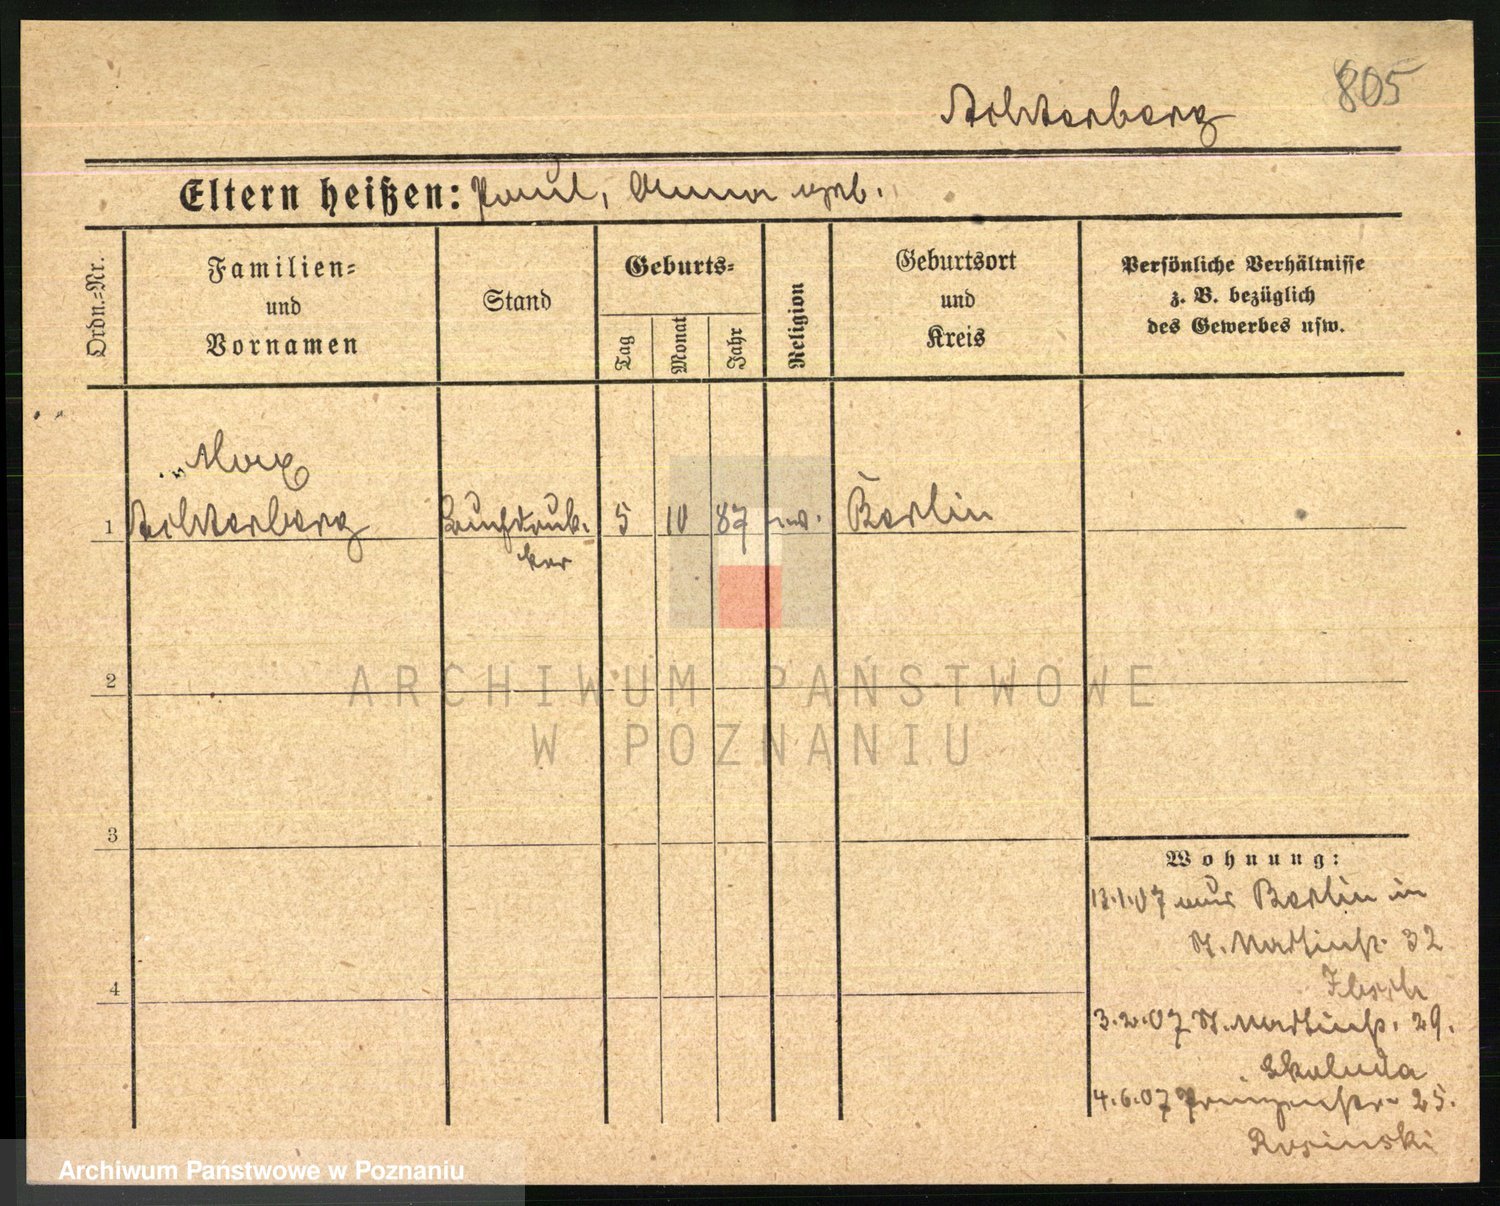 805
Achterberg
Eltern heißen: Paul, Anna geb.
Ordn.=Nr.
Familien=
und
Vornamen
Stand
Geburts=
Tag
Monat
Jahr
Religion
Geburtsort
und
Kreis
Persönliche Verhältnisse
z. B. bezüglich
des Gewerbes usw.
Max
1 Achterberg Buchdruk- 5 10 87 ev. Berlin
ker
2
ARCHIWUM PAŃSTWOWE
W POZNANIU
3
Wohnung:
13.1.07 aus Berlin in
St. Martinstr. 32
4
3.2.07 St. Martinstr. 29.
Skaluda
4.6.07 Prinzenstr. 25.
Rosinski
Archiwum Państwowe w Poznaniu